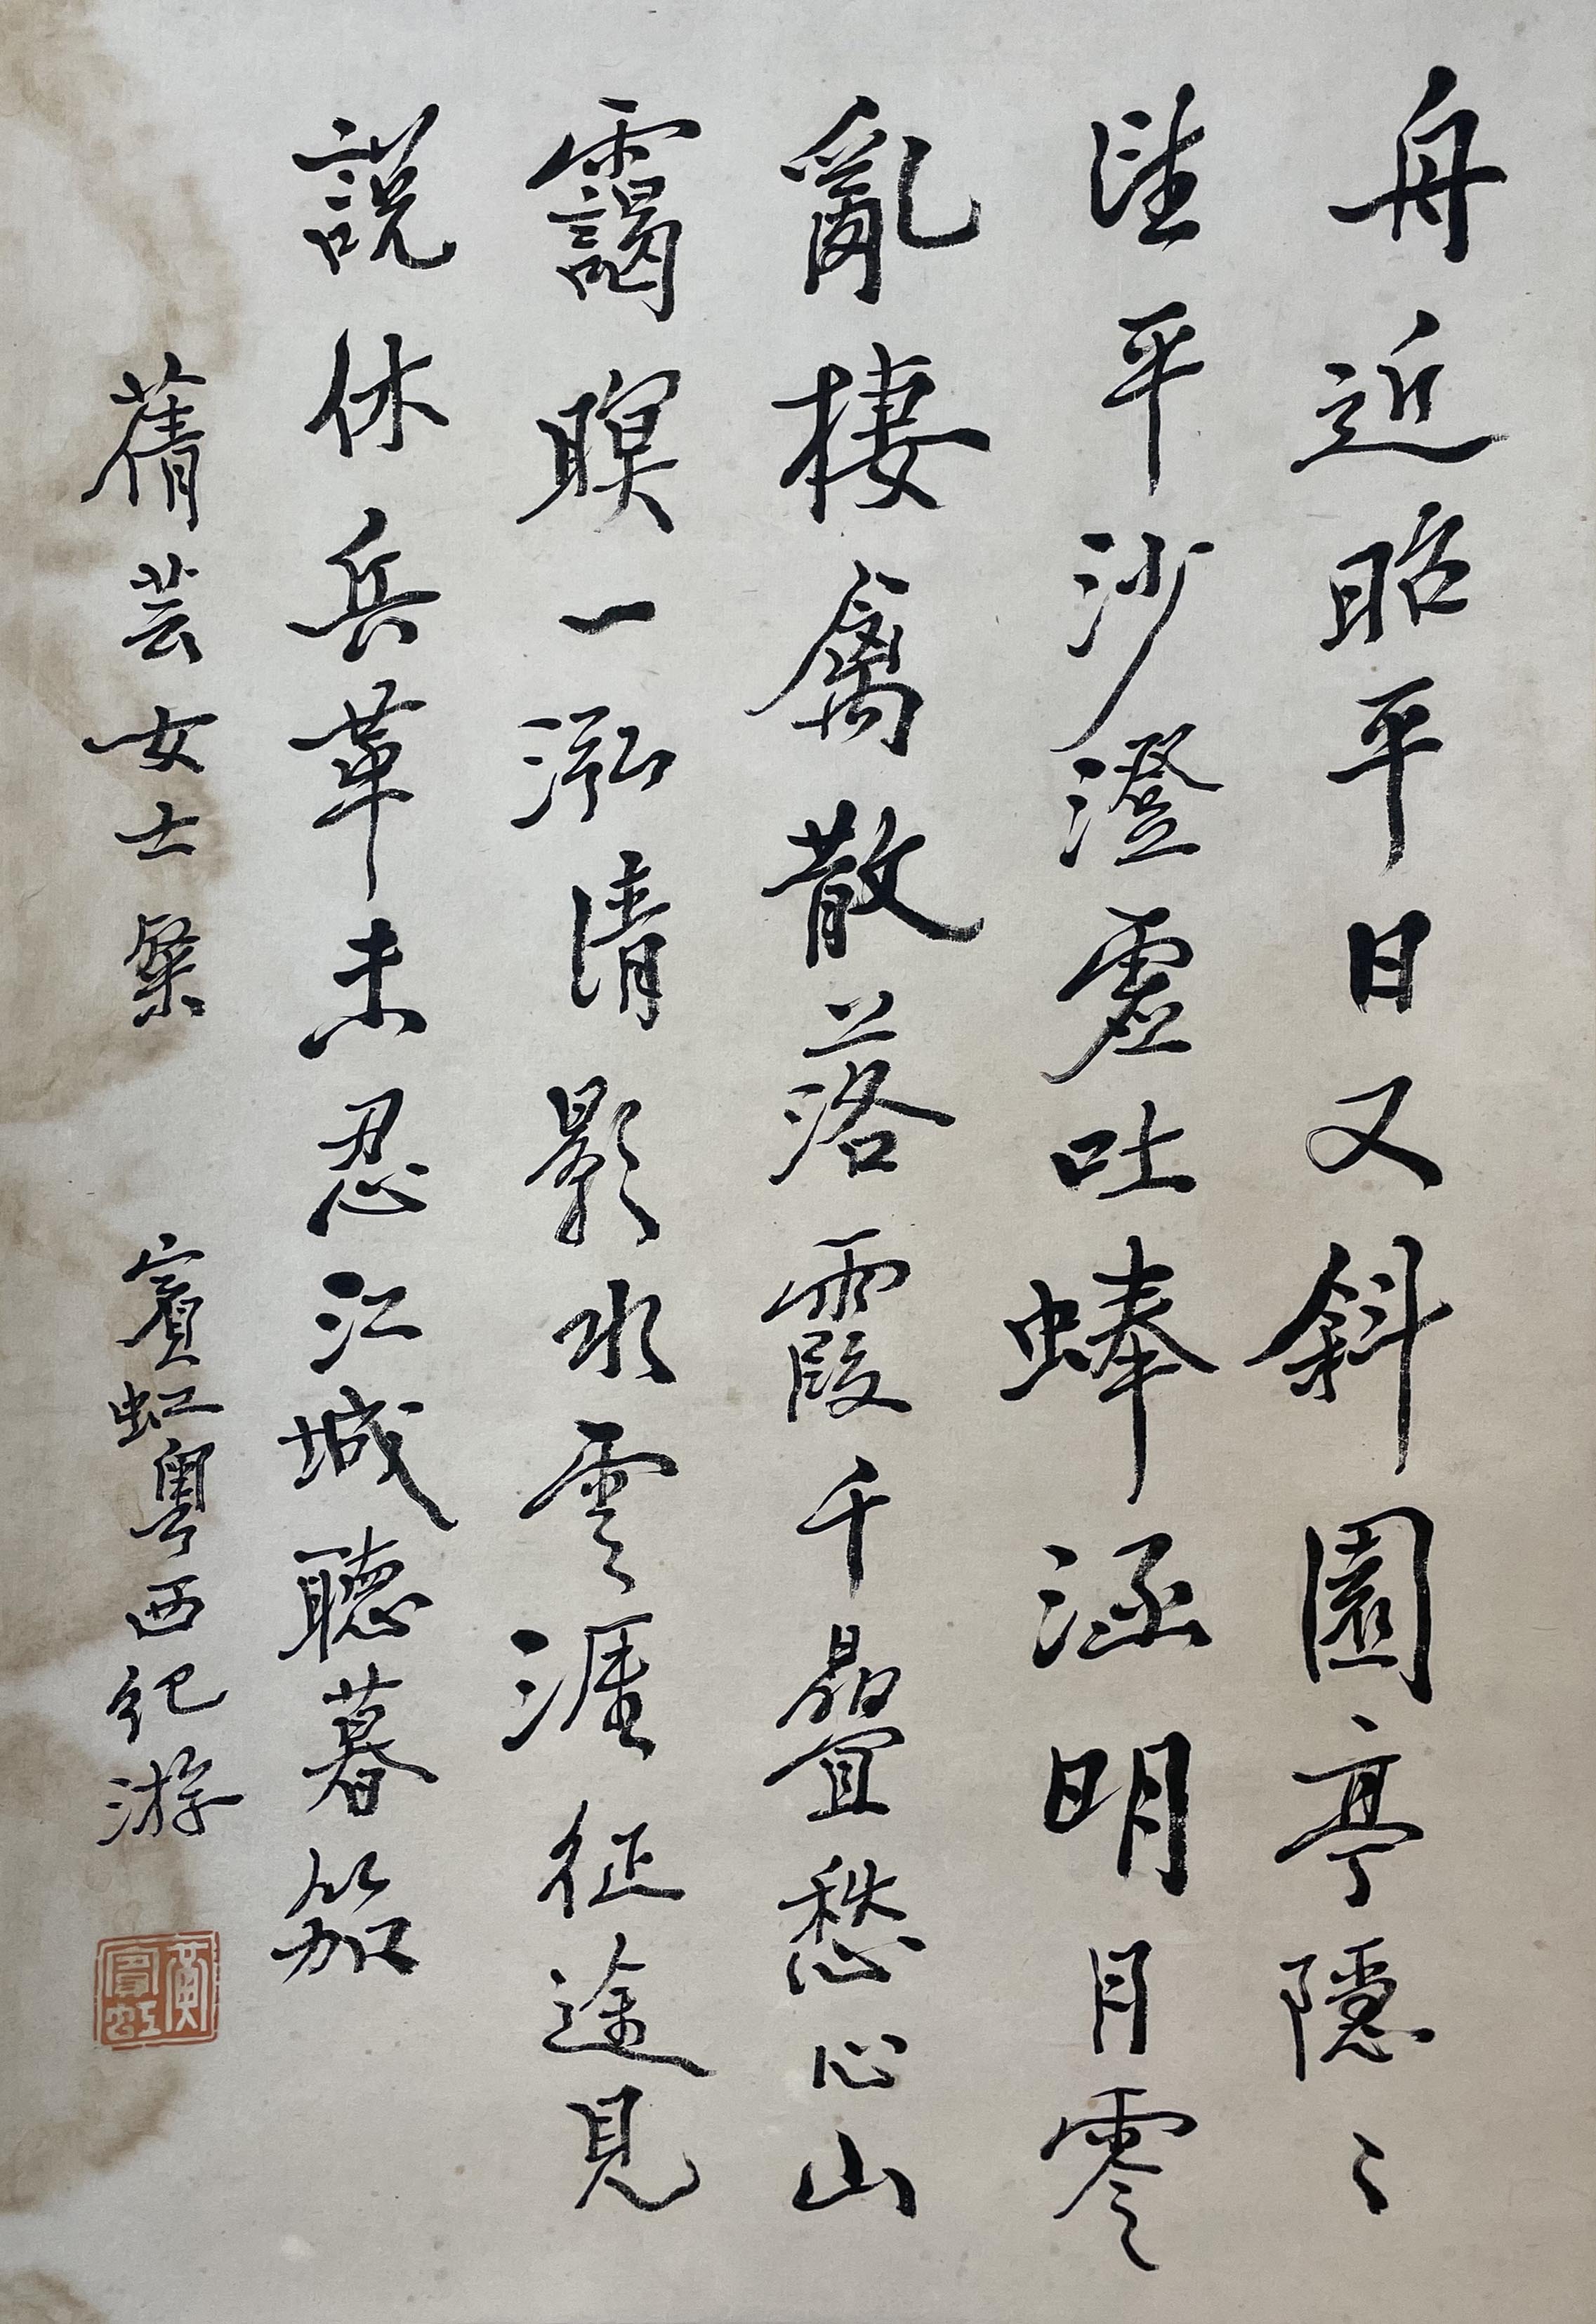 舟近昭平日又斜園亭隱〻
平沙澄虛吐蜯涵明月零
亂棲禽散落霞千疊愁心山
靄暝一泓清影水雲涯征途見
說休兵革未忍江城聽暮笳
蒨芸女士粲 賓虹粵西紀游
黃賓虹